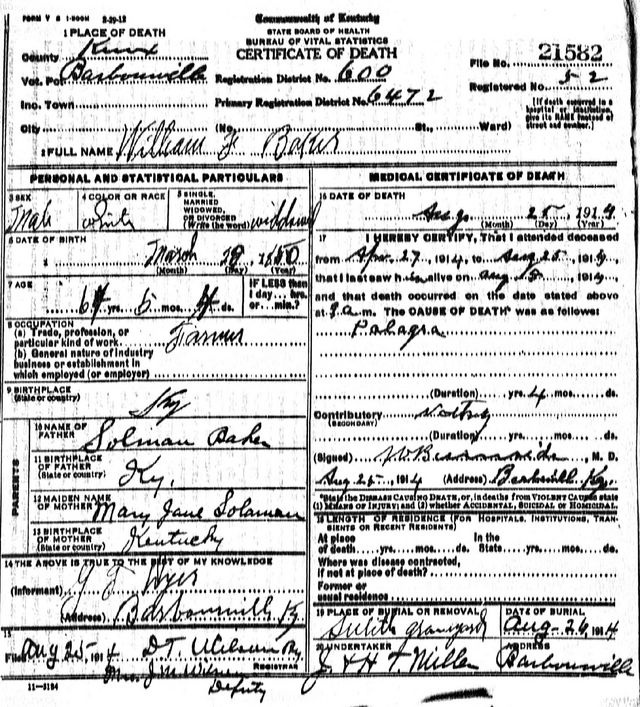 FORM V S 1-500M 3-29-12
Commonwealth of Kentucky
STATE BOARD OF HEALTH
BUREAU OF VITAL STATISTICS
CERTIFICATE OF DEATH
1 PLACE OF DEATH
County Knox
Vot. Pct Barbourville
Inc. Town
City
Registration District No. 600
Primary Registration District No. 6472
(No. St., Ward)
File No. 21582
Registered No. 52
[If death occurred in a hospital or institution, give its NAME instead of street and number.]
2 FULL NAME William F Baker
PERSONAL AND STATISTICAL PARTICULARS
3 SEX
Male
4 COLOR OR RACE
White
5 SINGLE, MARRIED WIDOWED, OR DIVORCED (Write the word) widowed
6 DATE OF BIRTH
March 18, 1850
(Month) (Day) (Year)
7 AGE
64 yrs. 5 mos. ds.
IF LESS than 1 day... hrs. or... min.?
8 OCCUPATION
(a) Trade, profession, or particular kind of work Farmer
(b) General nature of industry business or establishment in which employed (or employer)
9 BIRTHPLACE
(State or country) Ky
PARENTS
10 NAME OF FATHER Solman Baker
11 BIRTHPLACE OF FATHER (State or country) Ky.
12 MAIDEN NAME OF MOTHER Mary Jane Soloman
13 BIRTHPLACE OF MOTHER (State or country) Kentucky
14 THE ABOVE IS TRUE TO THE BEST OF MY KNOWLEDGE
(Informant)
(Address) Barbourville Ky
15
Filed Aug 25, 1914 D T Wilson
REGISTRAR
Mrs. J M Wilson
Deputy
11-3184
MEDICAL CERTIFICATE OF DEATH
16 DATE OF DEATH
Aug. 25, 1914
(Month) (Day) (Year)
17 I HEREBY CERTIFY, That I attended deceased
from Apr. 27, 1914 to Aug 25, 1914
that I last saw h alive on Aug 5, 1914
and that death occurred on the date stated above
at 9 a.m. The CAUSE OF DEATH* was as follows:
Palagra
(Duration) yrs. 4 mos. ds.
Contributory
(SECONDARY)
(Duration) yrs. mos. ds.
(Signed) M. D.
Aug 25, 1914 (Address) Barbourville Ky.
*State the DISEASE CAUSING DEATH, or, in deaths from VIOLENT CAUSES state
(1) MEANS OF INJURY; and (2) whether ACCIDENTAL, SUICIDAL or HOMICIDAL.
18 LENGTH OF RESIDENCE (FOR HOSPITALS, INSTITUTIONS, TRANSIENTS OR RECENT RESIDENTS)
At place In the
of death yrs. mos. ds. State yrs. mos. ds.
Where was disease contracted,
if not at place of death?
Former or
usual residence
19 PLACE OF BURIAL OR REMOVAL
graveyard
DATE OF BURIAL
Aug-26, 1914
20 UNDERTAKER
J. & H. T. Miller
ADDRESS
Barbourville